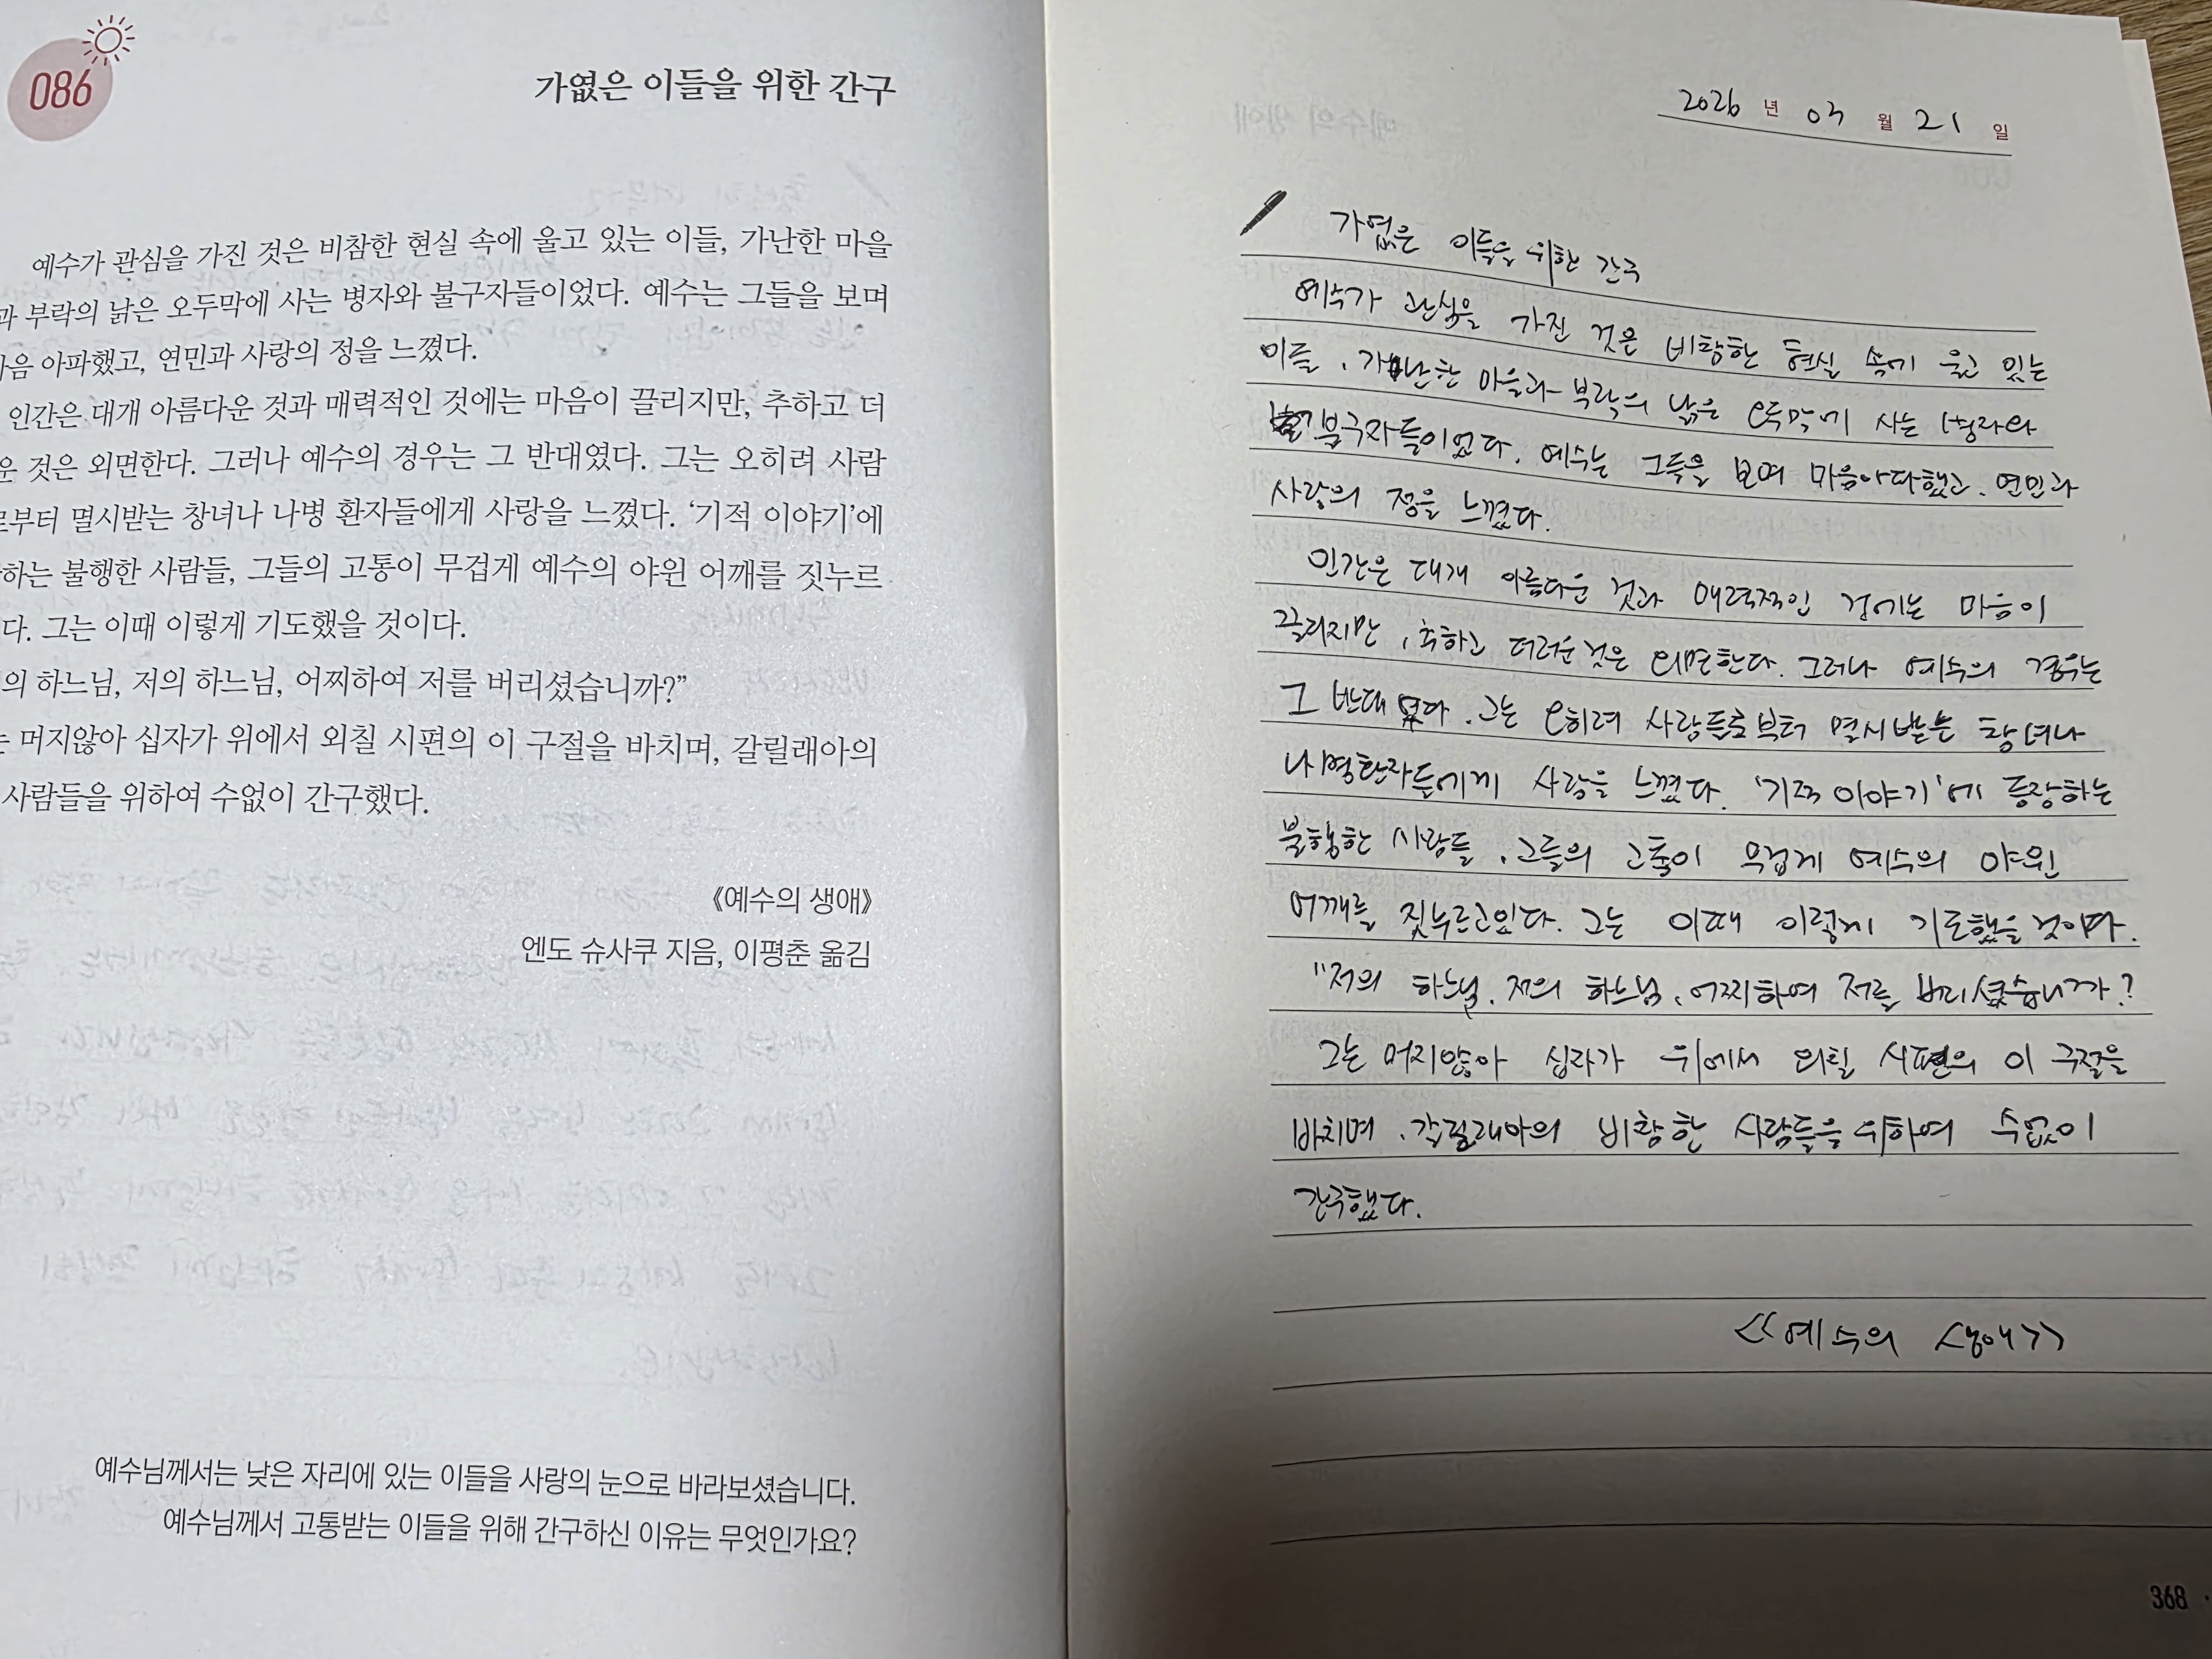 086
가엾은 이들을 위한 간구
예수가 관심을 가진 것은 비참한 현실 속에 울고 있는 이들, 가난한 마을
과 부락의 낡은 오두막에 사는 병자와 불구자들이었다. 예수는 그들을 보며
마음 아파했고, 연민과 사랑의 정을 느꼈다.
인간은 대개 아름다운 것과 매력적인 것에는 마음이 끌리지만, 추하고 더
운 것은 외면한다. 그러나 예수의 경우는 그 반대였다. 그는 오히려 사람
로부터 멸시받는 창녀나 나병 환자들에게 사랑을 느꼈다. ‘기적 이야기’에
하는 불행한 사람들, 그들의 고통이 무겁게 예수의 야윈 어깨를 짓누르
다. 그는 이때 이렇게 기도했을 것이다.
의 하느님, 저의 하느님, 어찌하여 저를 버리셨습니까?”
는 머지않아 십자가 위에서 외칠 시편의 이 구절을 바치며, 갈릴래아의
사람들을 위하여 수없이 간구했다.
《예수의 생애》
엔도 슈사쿠 지음, 이평춘 옮김
예수님께서는 낮은 자리에 있는 이들을 사랑의 눈으로 바라보셨습니다.
예수님께서 고통받는 이들을 위해 간구하신 이유는 무엇인가요?
2026 년 03 월 21 일
가엾은 이들을 위한 간구
예수가 관심을 가진 것은 비참한 현실 속에 울고 있는
이들, 가난한 마을과 부락의 낡은 오두막에 사는 병자와
불구자들이었다. 예수는 그들을 보며 마음아파했고, 연민과
사랑의 정을 느꼈다.
인간은 대개 아름다운 것과 매력적인 것에는 마음이
끌리지만, 추하고 더러운것은 외면한다. 그러나 예수의 경우는
그 반대였다. 그는 오히려 사람들로부터 멸시받는 창녀나
나병환자들에게 사랑을 느꼈다. '기적 이야기'에 등장하는
불행한 사람들, 그들의 고통이 무겁게 예수의 야윈
어깨를 짓누르고있다. 그는 이때 이렇게 기도했을 것이다.
"저의 하느님, 저의 하느님, 어찌하여 저를 버리셨습니까?
그는 머지않아 십자가 위에서 외칠 시편의 이 구절을
바치며, 갈릴래아의 비참한 사람들을 위하여 수없이
간구했다.
<<예수의 생애>>
368